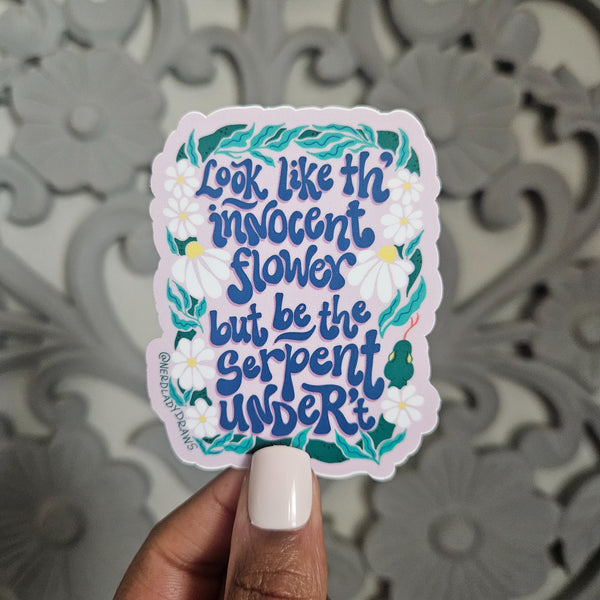 Look like th'
innocent
flower
but be the
serpent
under't
@NERDLADYDRAWS